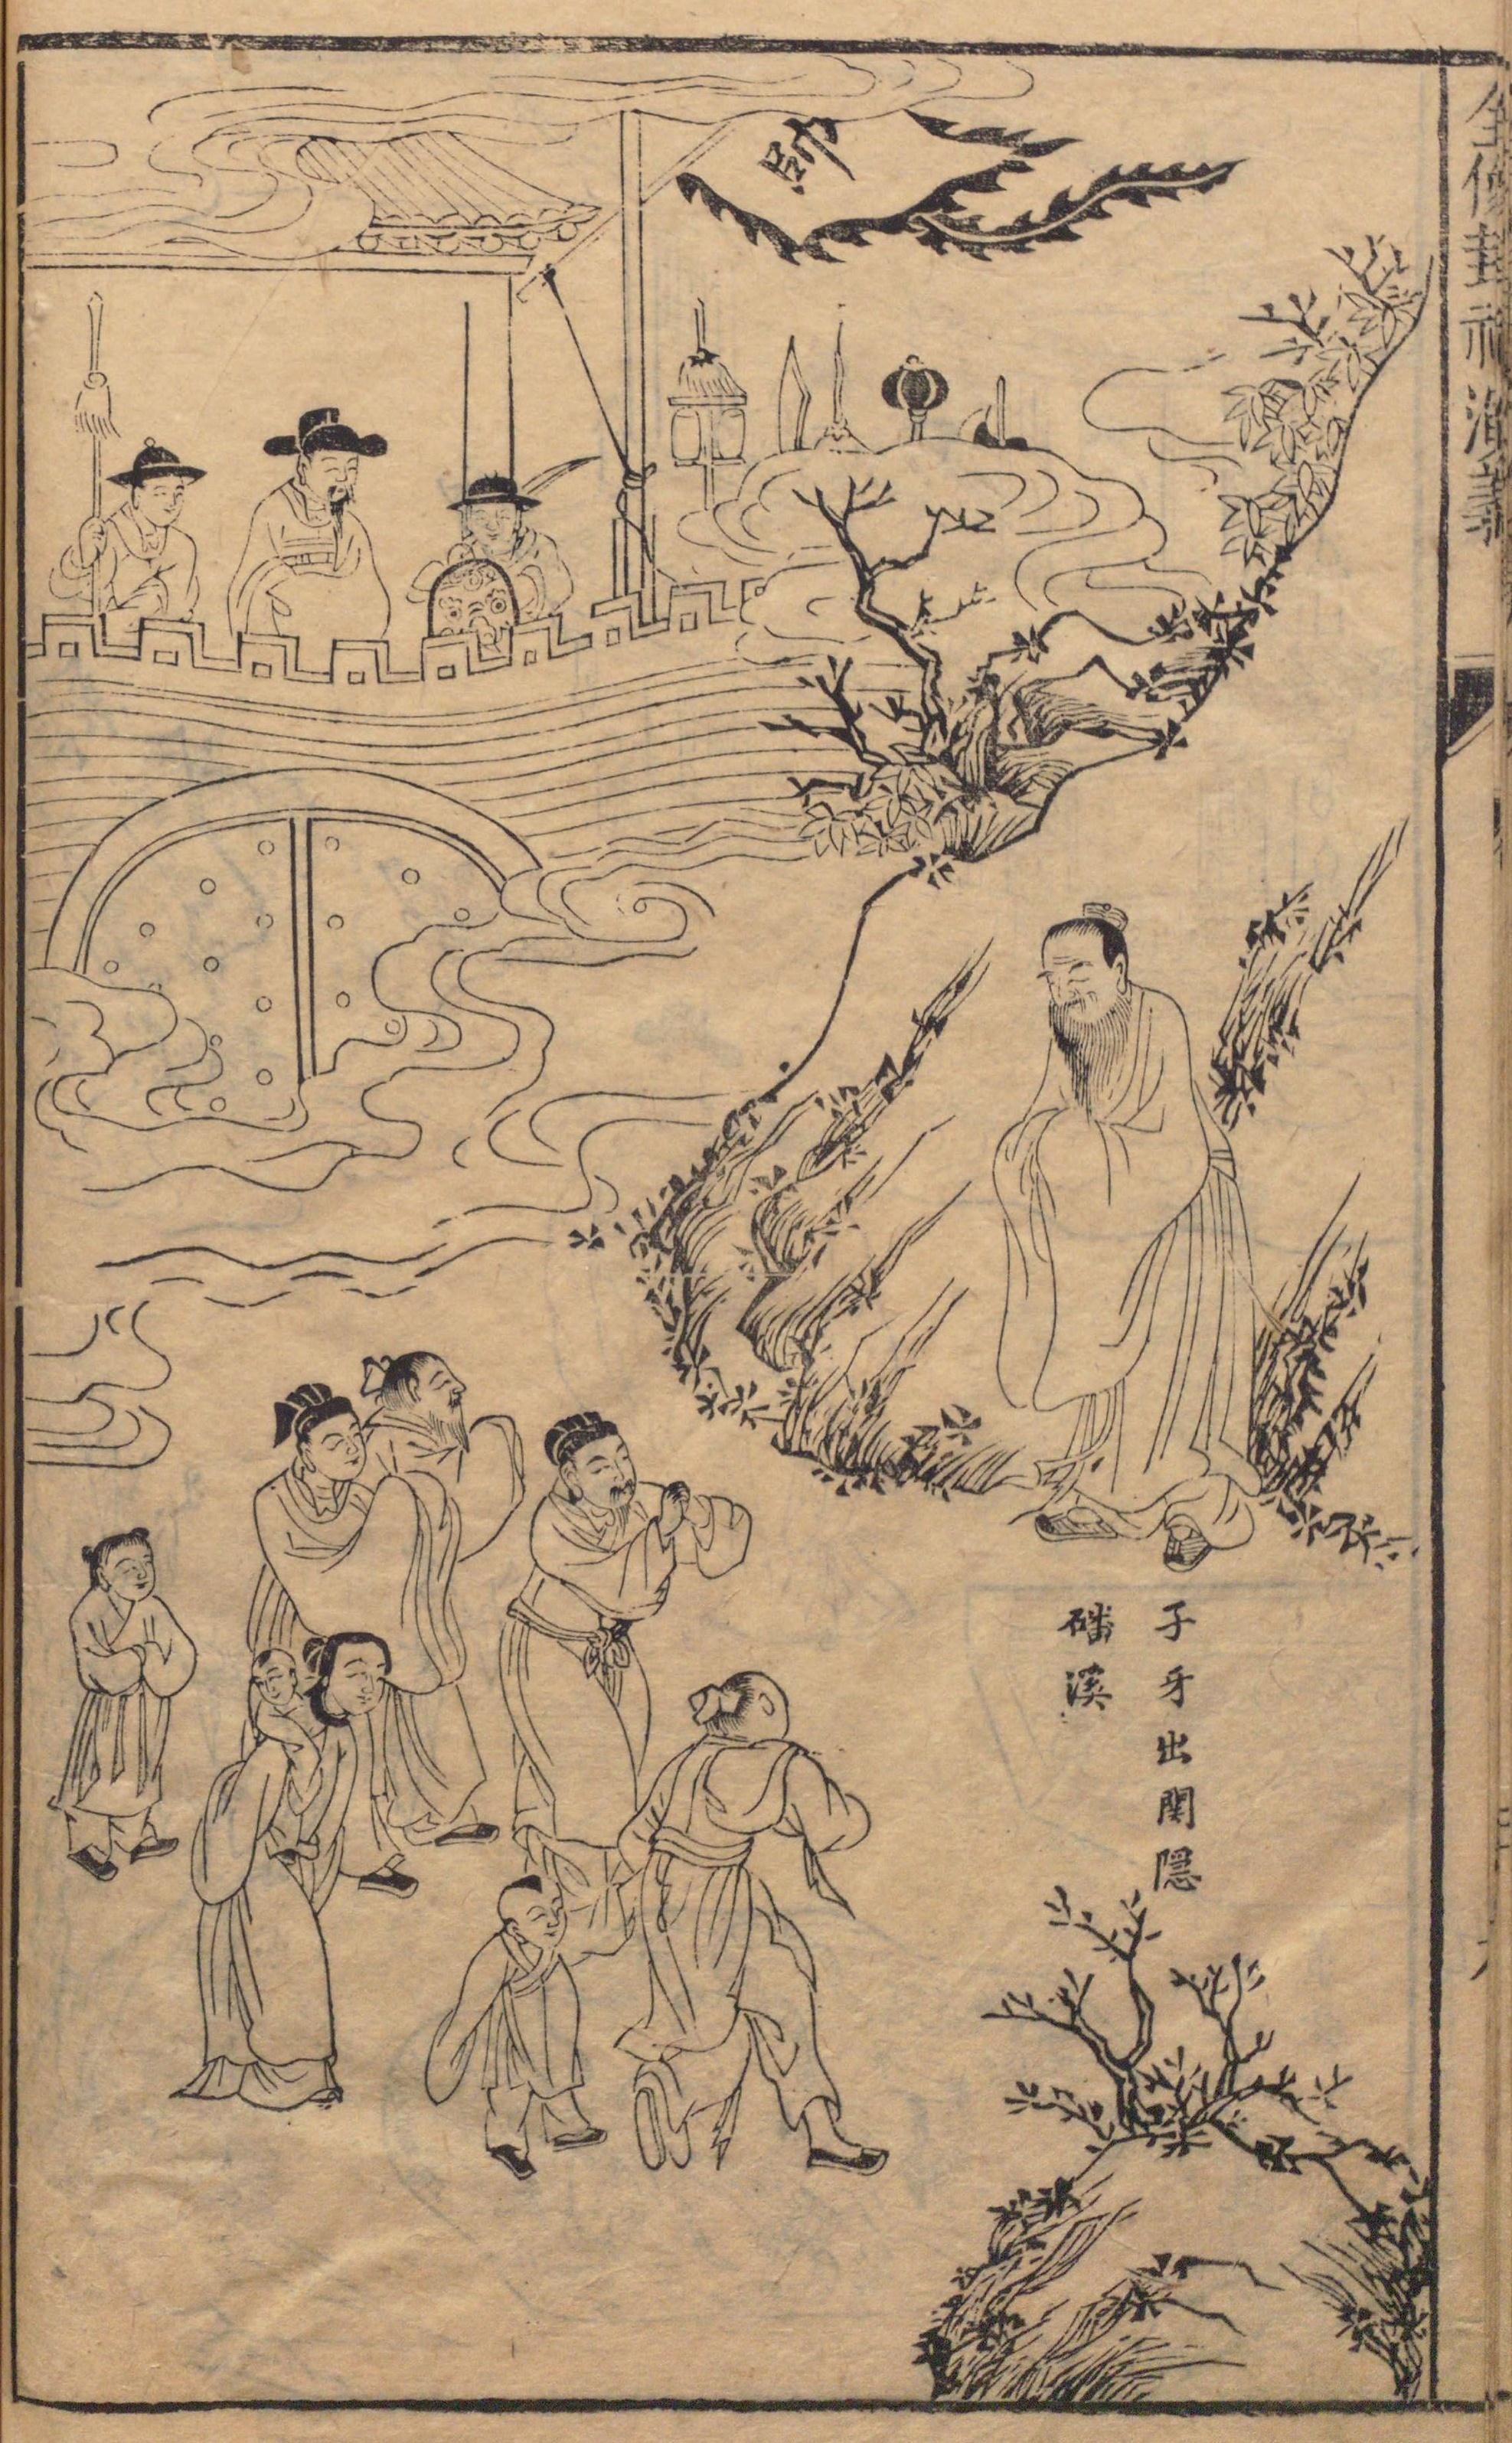 全像封神演義
帥
子牙出関隠
磻溪